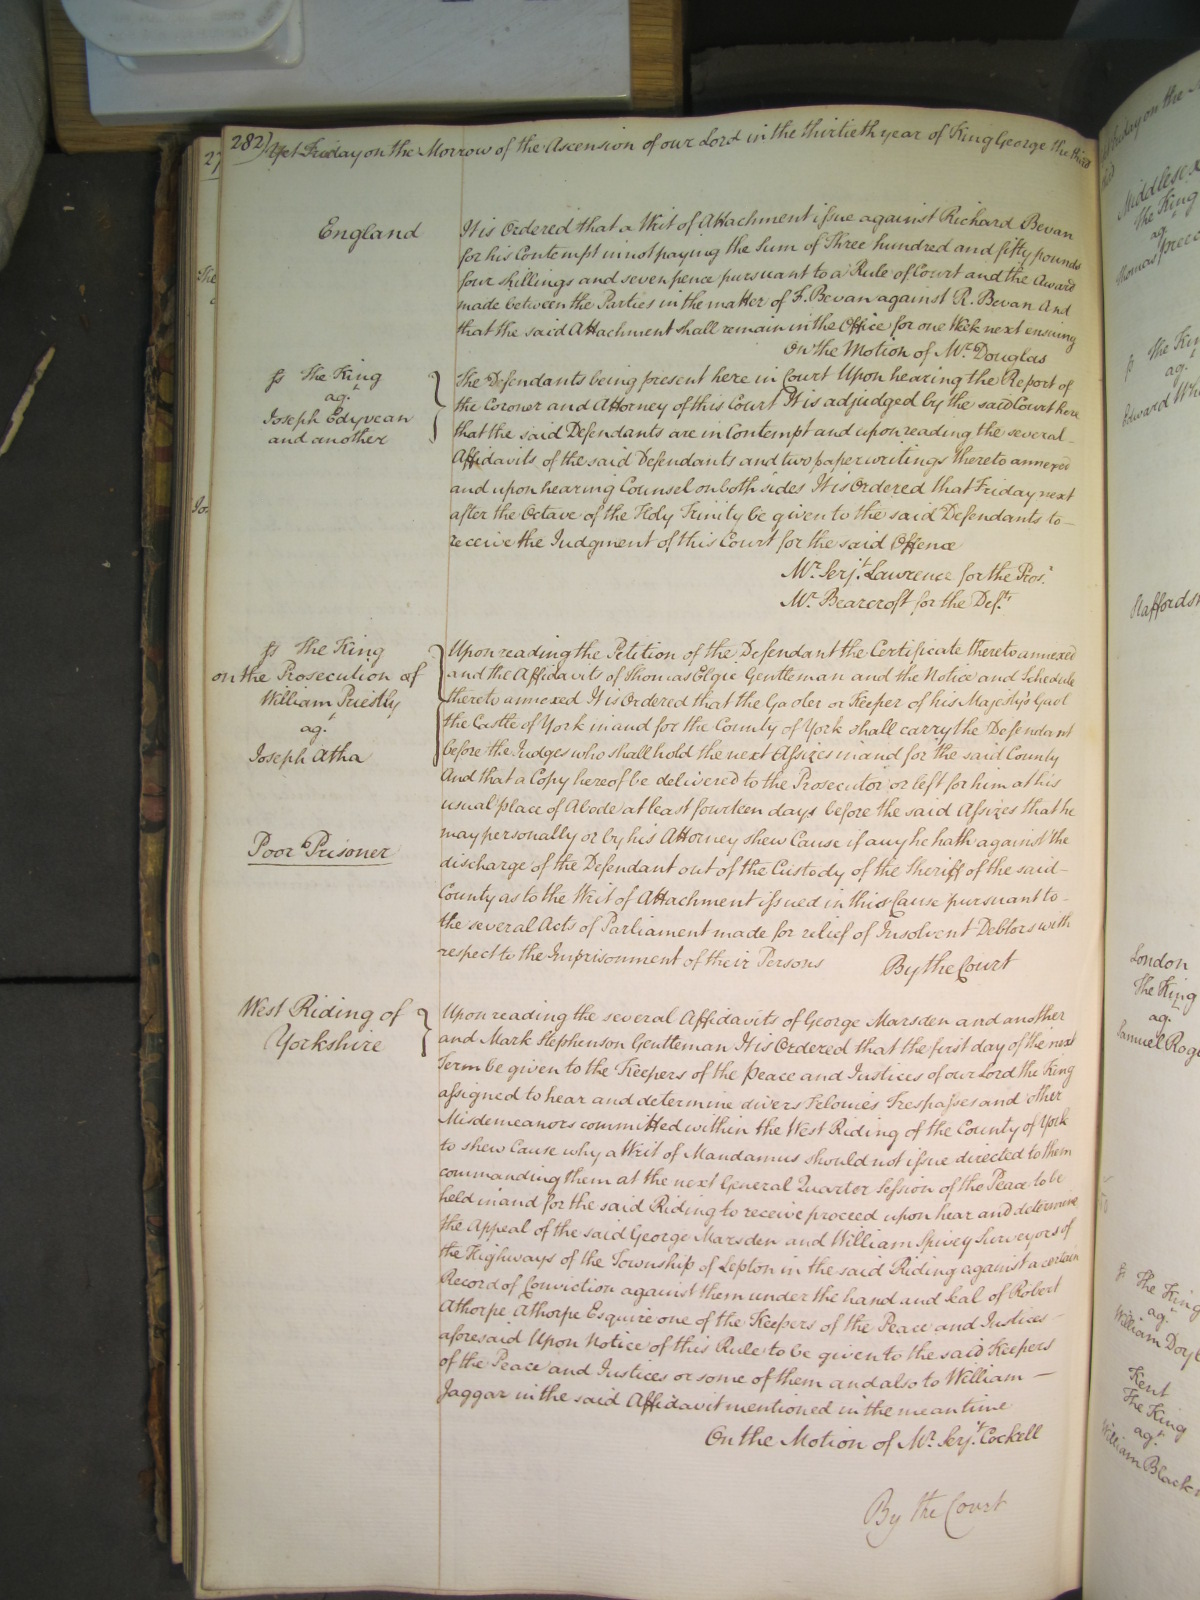 282) Yet Friday on the Morrow of the Ascension of our Lord in the thirtieth year of King George the third
England
It is Ordered that a Writ of Attachment issue against Richard Bevan
for his Contempt in not paying the Sum of Three hundred and fifty pounds
four shillings and seven pence pursuant to a Rule of Court and the Award
made between the Parties in the matter of F. Bevan against R. Bevan And
that the said Attachment shall remain in the Office for one Week next ensuing
On the Motion of Mr. Douglas
The King
agt.
Joseph Edyvean
and another
The Defendants being present here in Court Upon hearing the Report of
the Coroner and Attorney of this Court It is adjudged by the said Court here
that the said Defendants are in Contempt and upon reading the several
Affidavits of the said Defendants and two paper writings thereto annexed
and upon hearing Counsel on both sides It is Ordered that Friday next
after the Octave of the Holy Trinity be given to the said Defendants to
receive the Judgment of this Court for the said Offence
Mr. Serjt. Lawrence for the Pros.
Mr. Bearcroft for the Deft.
The King
on the Prosecution of
William Priestly
agt.
Joseph Atha
Poor Prisoner
Upon reading the Petition of the Defendant the Certificate thereto annexed
and the Affidavits of Thomas Elgie Gentleman and the Notice and Schedule
thereto annexed It is Ordered that the Gaoler or Keeper of his Majesty's Gaol
the Castle of York in and for the County of York shall carry the Defendant
before the Judges who shall hold the next Assizes in and for the said County
And that a Copy hereof be delivered to the Prosecutor or left for him at his
usual place of Abode at least fourteen days before the said Assizes that he
may personally or by his Attorney shew Cause if any he hath against the
discharge of the Defendant out of the Custody of the Sheriff of the said
County as to the Writ of Attachment issued in this Cause pursuant to
the several Acts of Parliament made for relief of Insolvent Debtors with
respect to the Imprisonment of their Persons By the Court
West Riding of
Yorkshire
Upon reading the several Affidavits of George Marsden and another
and Mark Stephenson Gentleman It is Ordered that the first day of the next
Term be given to the Keepers of the Peace and Justices of our Lord the King
assigned to hear and determine divers Felonies Trespasses and other
Misdemeanors committed within the West Riding of the County of York
to shew Cause why a Writ of Mandamus should not issue directed to them
commanding them at the next General Quarter Session of the Peace to be
held in and for the said Riding to receive proceed upon hear and determine
the Appeal of the said George Marsden and William Spivey Surveyors of
the Highways of the Township of Lepton in the said Riding against a certain
Record of Conviction against them under the hand and Seal of Robert
Athorpe Athorpe Esquire one of the Keepers of the Peace and Justices
aforesaid Upon Notice of this Rule to be given to the said Keepers
of the Peace and Justices or some of them and also to William
Jaggar in the said Affidavit mentioned in the mean time
On the Motion of Mr. Serjt. Cockell
By the Court
Middlesex
The King
agt.
Thomas
The King
agt.
Edward
London
The King
agt.
Samuel
The King
agt.
William
Kent
The King
agt.
William